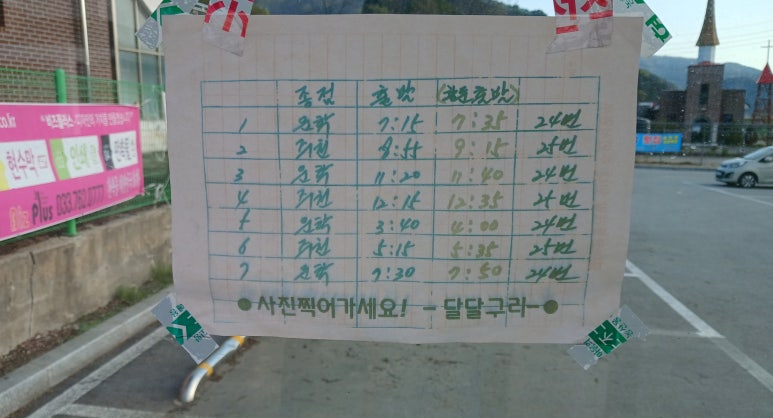 종점 출발 (황둔출발)
1 운학 7:15 7:35 24번
2 8:55 9:15 25번
3 운학 11:20 11:40 24번
4 12:15 12:35 25번
5 운학 3:40 4:00 24번
6 5:15 5:35 25번
7 운학 7:30 7:50 24번
●사진찍어가세요! - 달달구리-●
co.kr
현수막 인쇄물 판촉물
Biz plus 033.762.0777